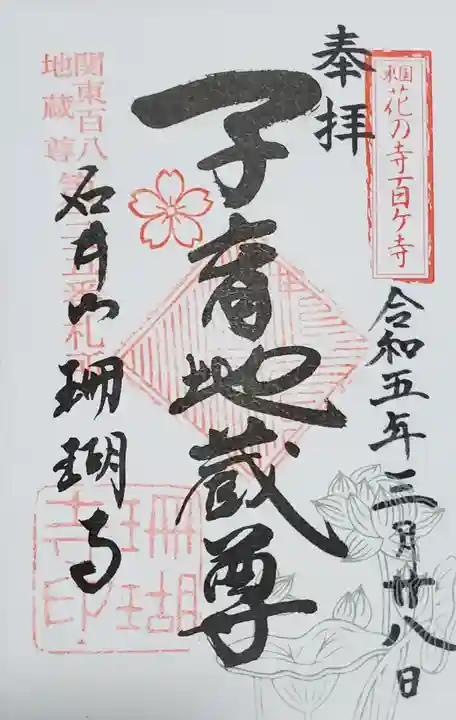 花の寺百ヶ寺
奉拝
令和五年三月廿八日
子育地蔵尊
関東百八
地蔵尊
番札所
石井山 珊瑚寺
珊瑚
寺印